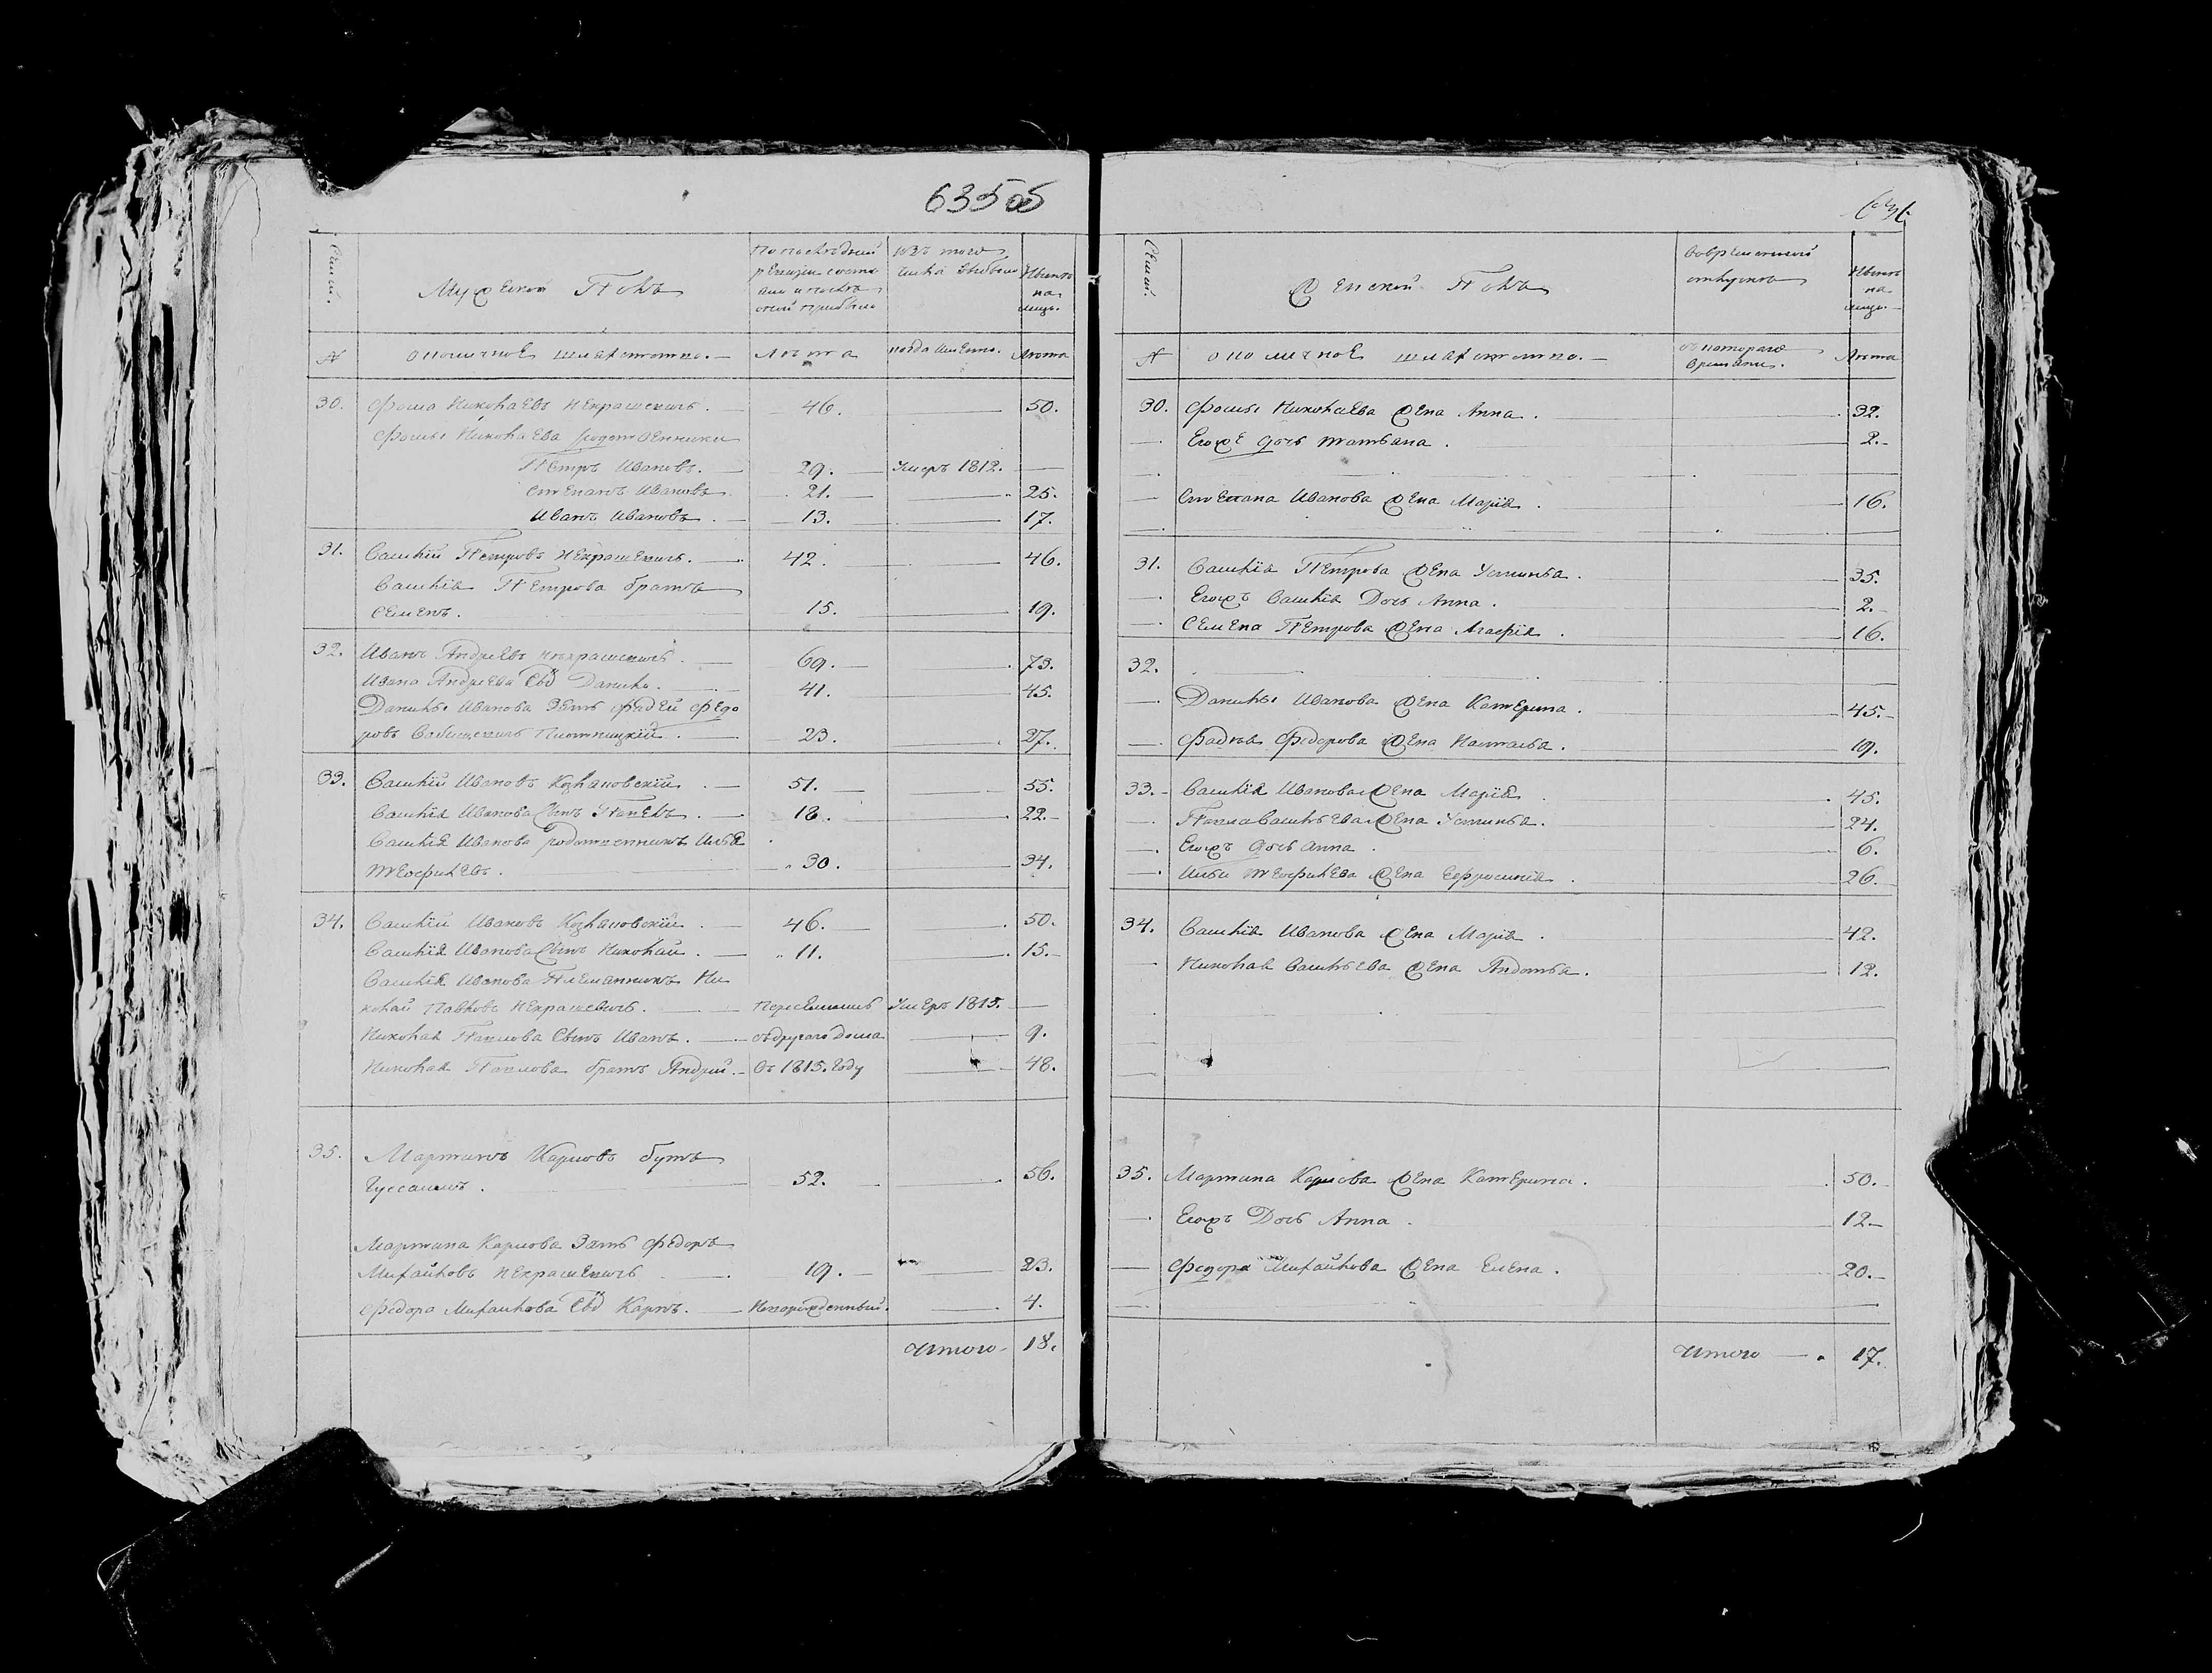 635 об
Семьи.
Мужеской Полъ
По последней
ревизии состо
яло и после
оной прибыло
Изъ того
числа выбыло
Ныне
на
лицо.
№
околичное шляхетство.
Лета
когда именно.
Лета
30. Фома Николаевъ Некрашевичъ. 46. 50.
Фомы Николаева родственники
Петръ Ивановъ. 29. Умеръ 1812.
Степанъ Ивановъ 21. 25.
Иванъ Ивановъ. 13. 17.
31. Василий Петровъ Некрашевичъ. 42. 46.
Василия Петрова братъ
Семенъ. 15. 19.
32. Иванъ Андреевъ Некрашевичъ. 69. 73.
Ивана Андреева Сынъ Данило. 41. 45.
Данилы Иванова Зять Фадей Федо
ровъ Плотницкий. 23. 27.
33. Василий Ивановъ Козловский. 51. 55.
Василия Иванова Сынъ Павелъ. 18. 22.
Василия Иванова родственникъ Илья
Теофилевъ. 30. 34.
34. Василий Ивановъ Козловский. 46. 50.
Василия Иванова Сынъ Николай. 11. 15.
Василия Иванова Племянникъ Ни
колай Павловъ Некрашевичъ. Переселились Умеръ 1815.
Николая Павлова Сынъ Иванъ. съ другаго дома 9.
Николая Павлова братъ Андрей. Въ 1815. году 48.
35. Мартинъ Карповъ бутъ
Гуссаимъ. 52. 56.
Мартина Карпова Зять Федоръ
Михайловъ Некрашевичъ 19. 23.
Федора Михайлова Сынъ Карпъ. Новорожденный. 4.
Итого 18.
636
Семьи.
Женской Полъ
Во временной
отлучке
Ныне
на
лицо.
№
околичное шляхетство.
съ котораго
времени.
Лета
30. Фомы Николаева жена Анна. 32.
Егоже дочь Татьана. 2.
Степана Иванова жена Мария. 16.
31. Василия Петрова жена Устинья. 35.
Егожъ Василия Дочь Анна. 2.
Семена Петрова жена Агафия. 16.
32.
Данилы Иванова жена Катерина. 45.
Фадея Федорова жена Настасья. 19.
33. Василия Иванова жена Мария. 45.
Павла Васильева жена Устинья. 24.
Егожъ дочь Анна. 6.
Ильи Теофилева жена Ефросиния. 26.
34. Василия Иванова жена Мария. 42.
Николая Васильева жена Авдотья. 12.
35. Мартина Карпова жена Катерина. 50.
Егожъ Дочь Анна. 12
Федора Михайлова жена Елена. 20.
Итого 17.